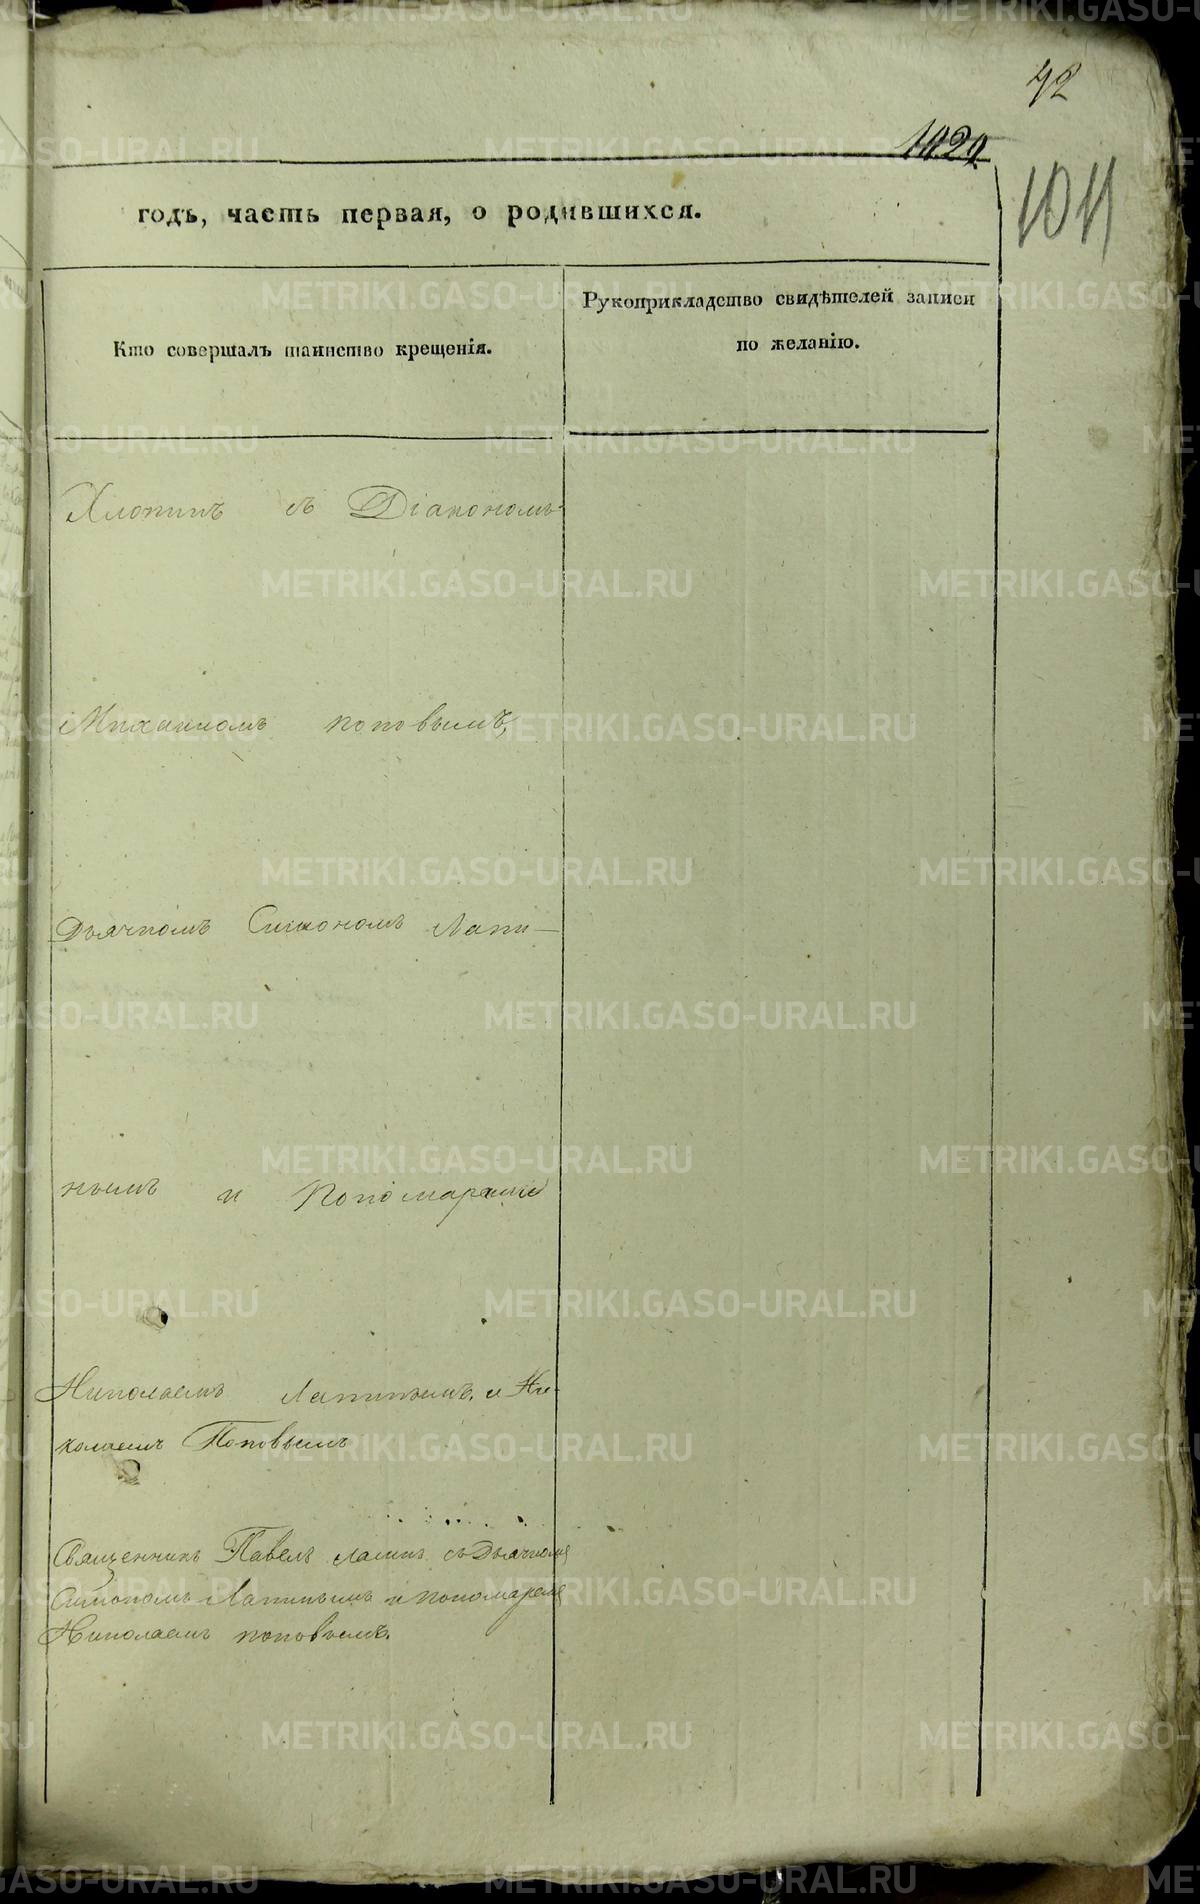 42
1029
1011
годъ, часть первая, о родившихся.
Кто совершалъ таинство крещенія.
Рукоприкладство свидѣтелей записи
по желанію.
Хлопинъ съ Діакономъ
Михаиломъ поповымъ,
Дьячкомъ Симономъ Лапи-
нымъ и Пономарями
Николаемъ Лапинымъ, и Ни-
колаемъ Поповымъ
Священникъ Павелъ съ Дьячкомъ
Симономъ Лапинымъ и пономаремъ
Николаемъ поповымъ.
METRIKI.GASO-URAL.RU